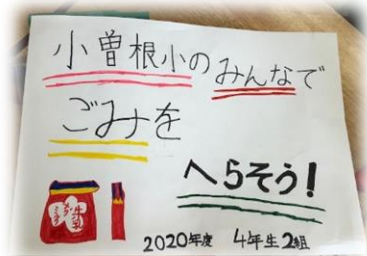 小曽根小のみんなで
ごみを
へらそう!
2020年度 4年生2組